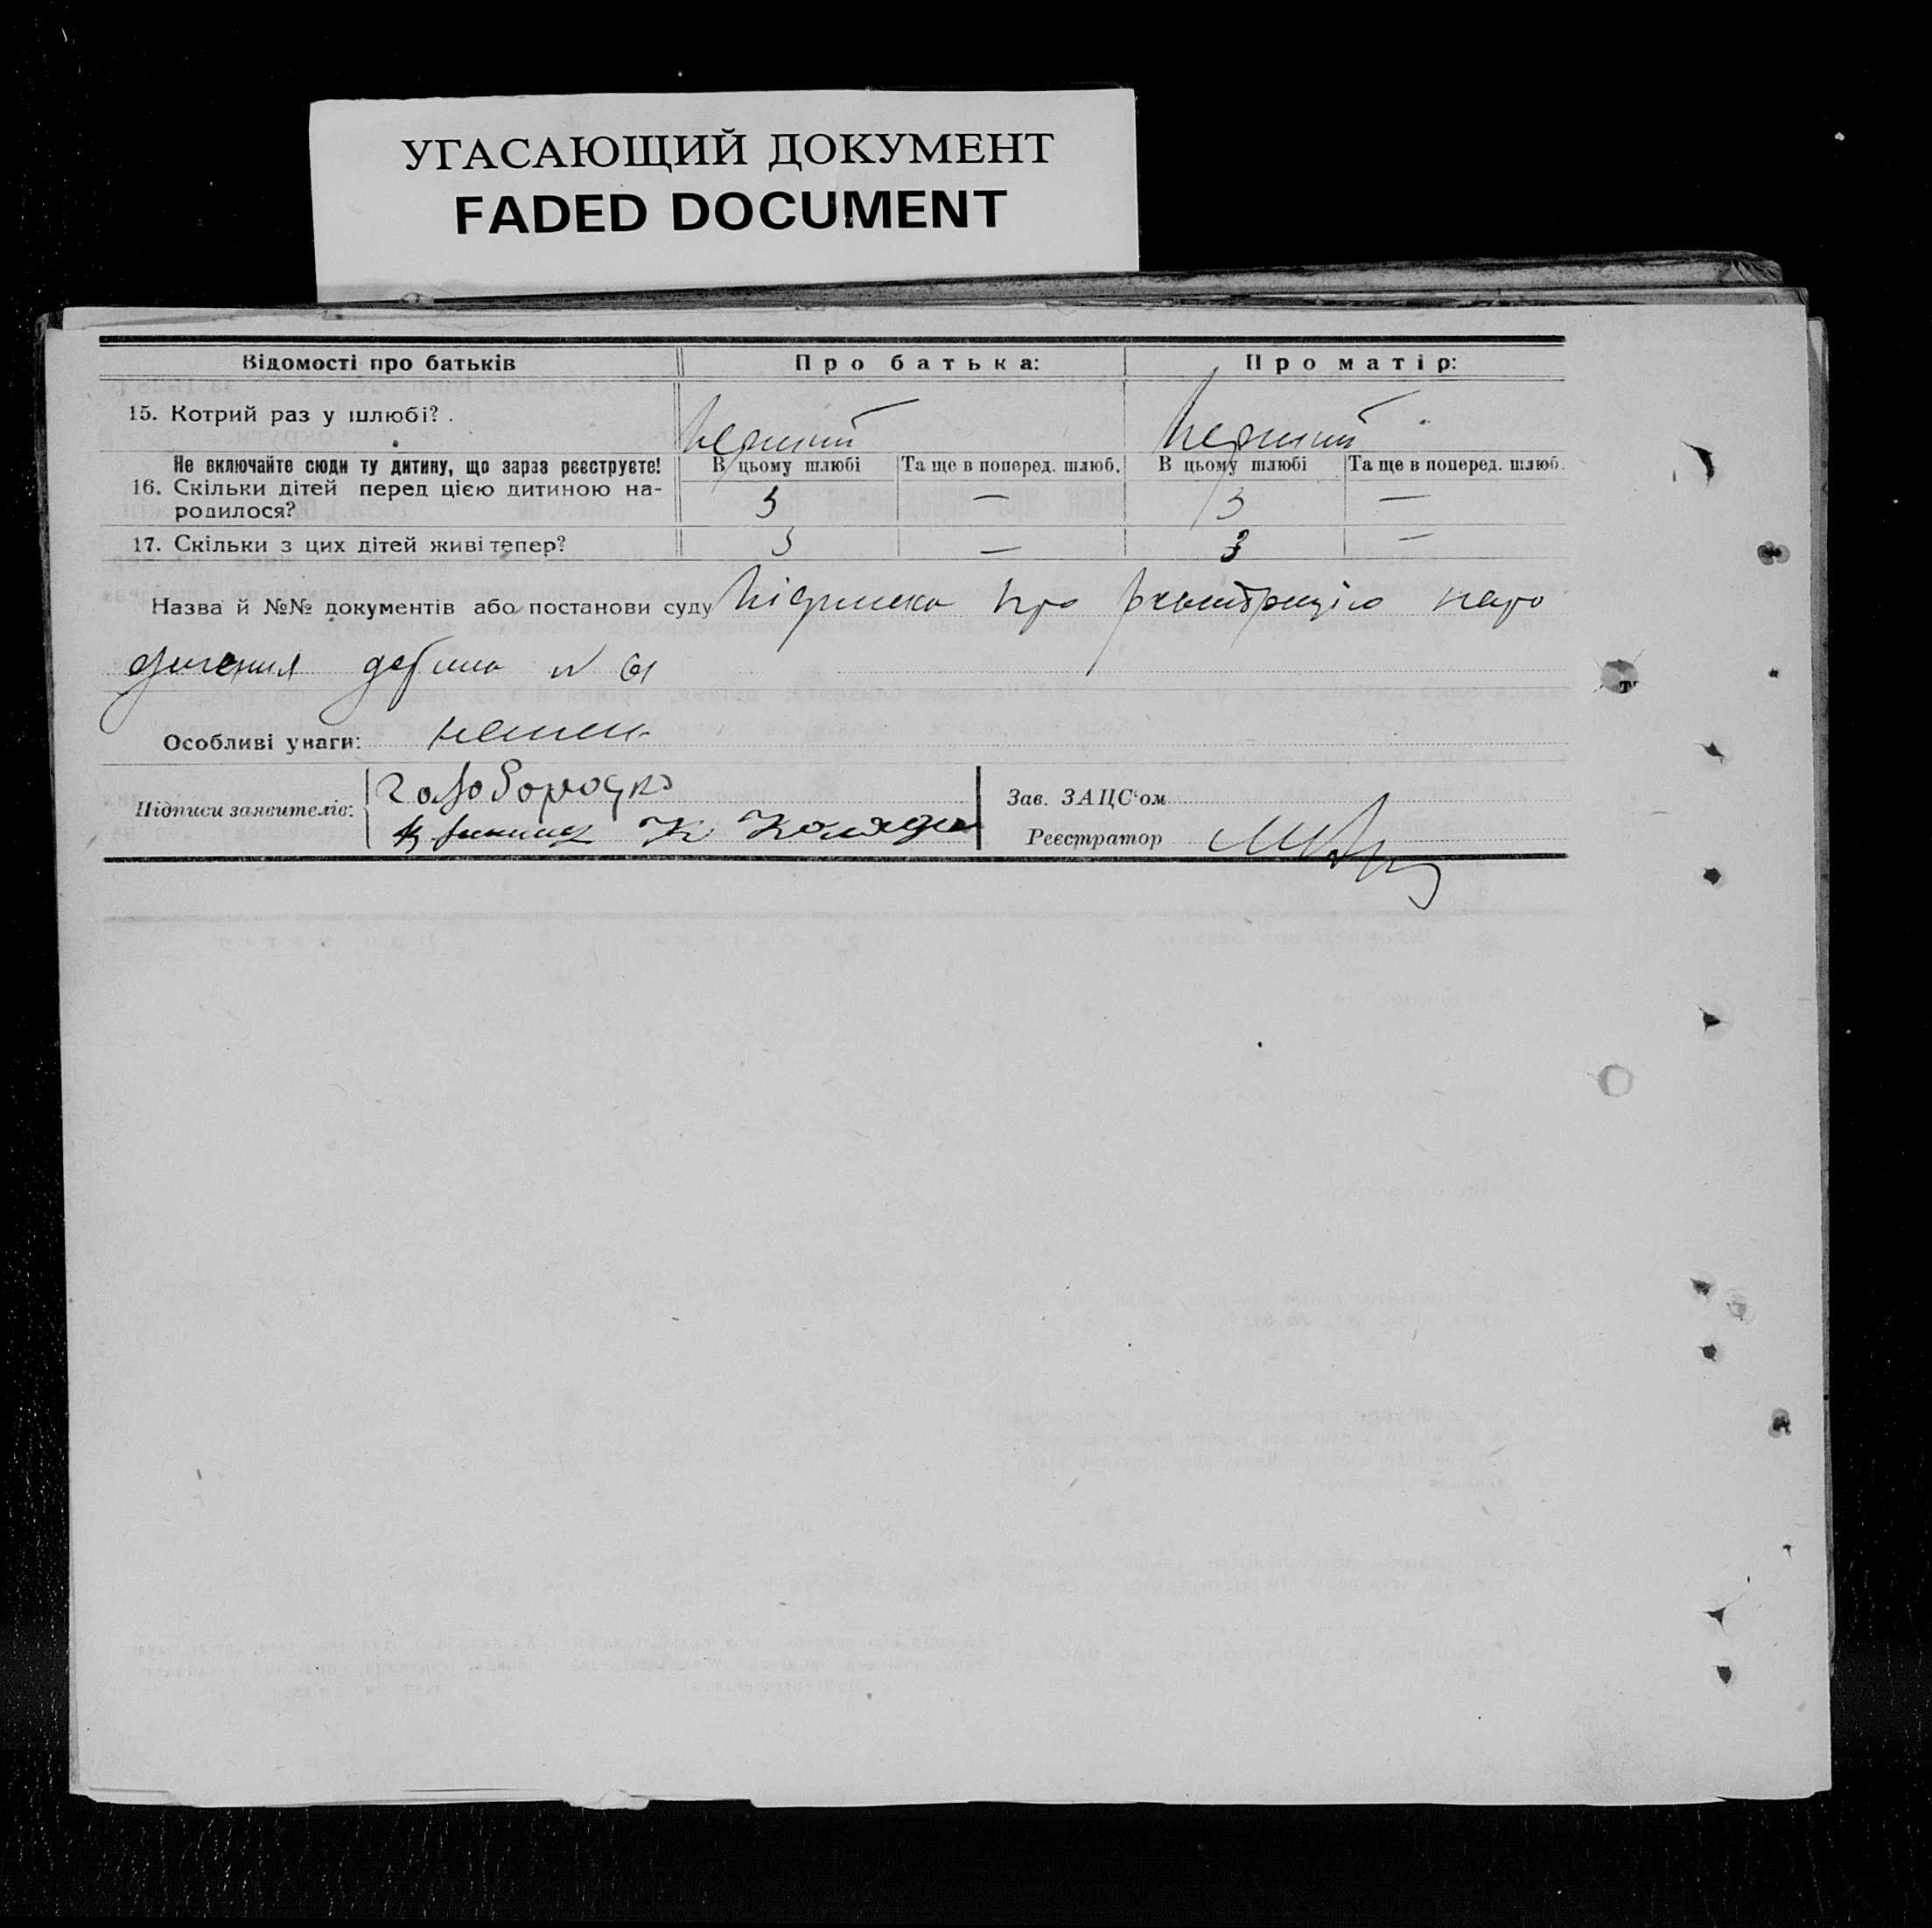 УГАСАЮЩИЙ ДОКУМЕНТ
FADED DOCUMENT
Відомості про батьків Про батька: Про матір:
15. Котрий раз у шлюбі? . перший перший
Не включайте сюди ту дитину, що зараз реєструєте! В цьому шлюбі Та ще в поперед. шлюб. В цьому шлюбі Та ще в поперед. шлюб.
16. Скільки дітей перед цією дитиною на-
родилося? 3 — 3 —
17. Скільки з цих дітей живі тепер? 3 — 3 —
Назва й №№ документів або постанови суду підписка про реєстрацію наро
дження N 61
Особливі уваги: немає
Підписи заявителів: Голобородко
К Коляда
Зав. ЗАЦС'ом
Реєстратор